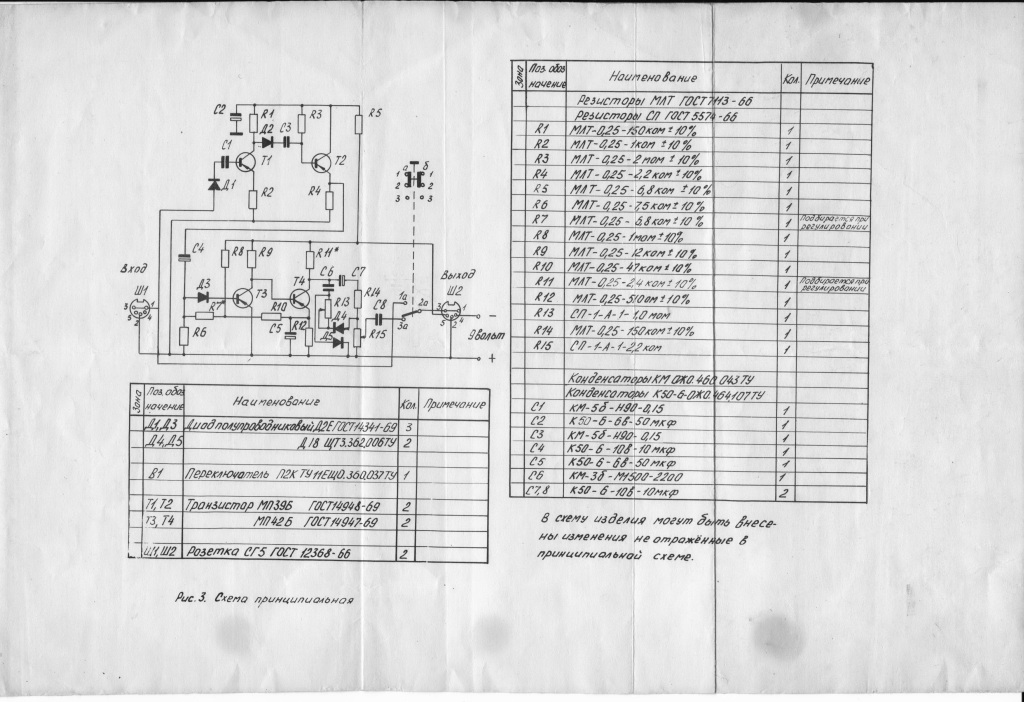 C2
R1
R3
R5
Д2
C3
C1
T1
T2
Д1
R2
R4
а б
1 1
2 2
3 3
C4
R8
R9
R11*
Вход
Ш1
3 1
5 4
2
Д3
R7
T3
R10
T4
C6
C7
R13
R14
Д4
C8
1а
2а
3а
Выход
Ш2
R6
C5
R12
Д5
R15
−
9 вольт
+
Зона
Поз. обоз
начение
Наименование
Кол.
Примечание
Д1, Д3 Диод полупроводниковый, Д2Е ГОСТ 14341-69 3
Д4, Д5 Д18 ЩТ3.362.006ТУ 2
В1 Переключатель П2К ТУ 11 ЕЩО.360.037ТУ 1
Т1, Т2 Транзистор МП39Б ГОСТ 14948-69 2
Т3, Т4 МП42Б ГОСТ 14947-69 2
Ш1, Ш2 Розетка СГ5 ГОСТ 12368-66 2
Рис. 3. Схема принципиальная
Зона
Поз. обоз
начение
Наименование
Кол.
Примечание
Резисторы МЛТ ГОСТ 7113-66
Резисторы СП ГОСТ 5574-66
R1 МЛТ-0,25-150 ком ± 10% 1
R2 МЛТ-0,25-1 ком ± 10% 1
R3 МЛТ-0,25-2 мом ± 10% 1
R4 МЛТ-0,25-2,2 ком ± 10% 1
R5 МЛТ-0,25-6,8 ком ± 10% 1
R6 МЛТ-0,25-7,5 ком ± 10% 1
R7 МЛТ-0,25-6,8 ком ± 10% 1 Подбирается при регулировании
R8 МЛТ-0,25-1 мом ± 10% 1
R9 МЛТ-0,25-12 ком ± 10% 1
R10 МЛТ-0,25-47 ком ± 10% 1
R11 МЛТ-0,25-2,4 ком ± 10% 1 Подбирается при регулировании
R12 МЛТ-0,25-510 ом ± 10% 1
R13 СП-1-А-1-1,0 мом 1
R14 МЛТ-0,25-150 ком ± 10% 1
R15 СП-1-А-1-2,2 ком 1
Конденсаторы КМ ОЖО.460.043ТУ
Конденсаторы К50-6-ОЖО.464107ТУ
С1 КМ-5б-Н90-0,15 1
С2 К50-6-6в-50 мкф 1
С3 КМ-5б-Н90-0,15 1
С4 К50-6-10в-10 мкф 1
С5 К50-6-6в-50 мкф 1
С6 КМ-3б-М1500-2200 1
С7,8 К50-6-10в-10 мкф 2
В схему изделия могут быть внесе-
ны изменения не отражённые в
принципиальной схеме.